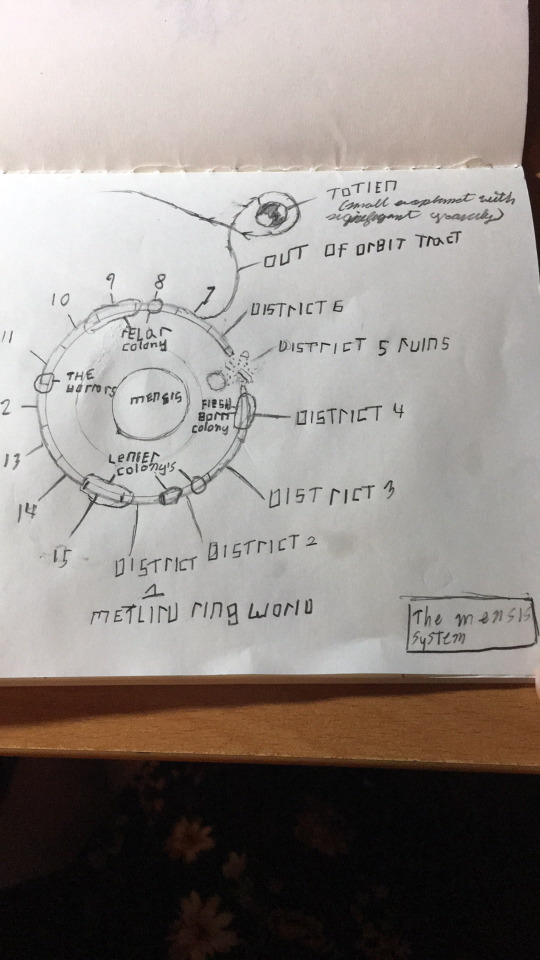 TOTIEN
(small exoplanet with
significant gravity)
OUT OF ORBIT TRACT
9
8
7
10
DISTRICT 6
FELAR
colony
DISTRICT 5 RUINS
11
THE
Horrors
mensis
FLESH
BORN
colony
DISTRICT 4
2
13
LENIER
COLONY'S
DISTRICT 3
14
15
DISTRICT
1
DISTRICT 2
METLIN RING WORLD
The mensis
system